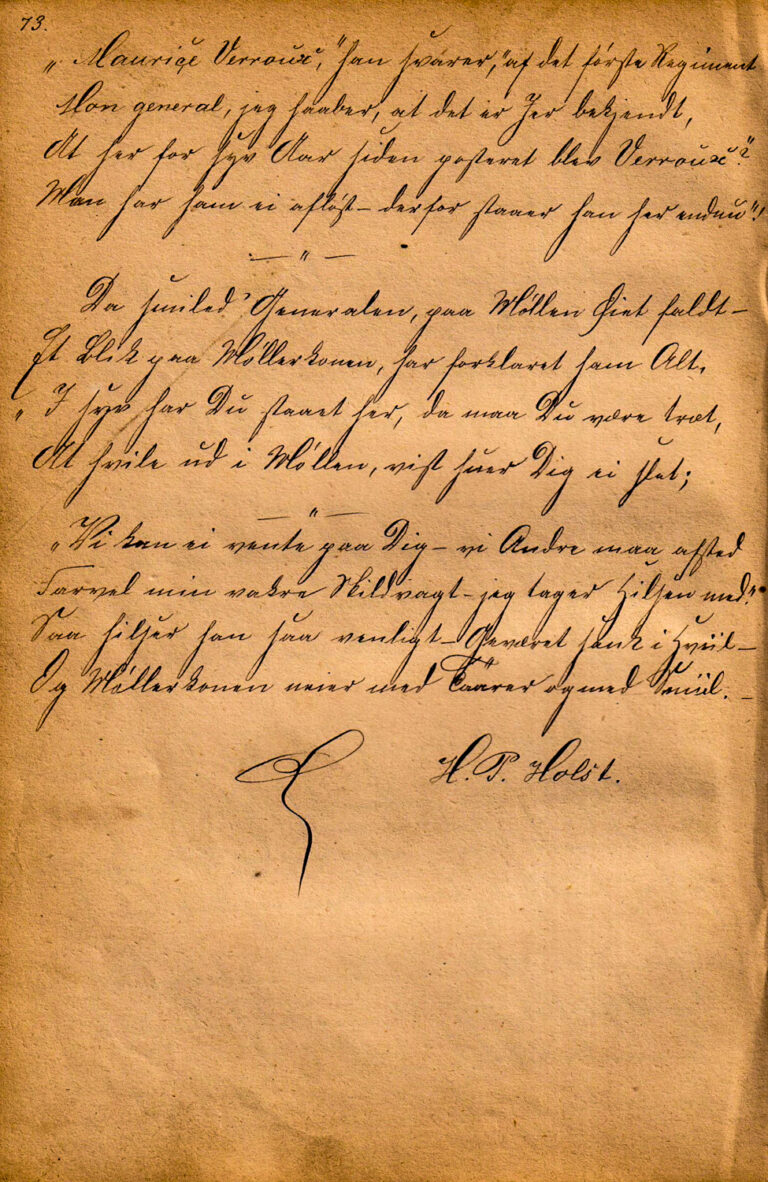 73.
„Mauriçe Verroux," han svarer, "af det første Regiment
Mon general, jeg haaber, at det er Jer bekjendt,
At her for syv Aar siden posteret blev Verroux?"
Man har ham ei afløst – derfor staaer han her endnu"!
— " —
Da smiled' Generalen, paa Møllen Øiet faldt –
Et Blik paa Møllerkonen, har forklaret ham Alt.
„I syv har Du staaet her, da maa Du være træt,
At hvile ud i Møllen, vist huer Dig ei slet;
— " —
„Vi kan ei vente paa Dig – vi Andre maa afsted
Farvel min vakre Skildvagt – jeg tager Hilsen med."
Saa hilser han saa venligt – Geværet sank i Hviil –
Og Møllerkonen neier med Taarer og med Smiil. –
H. P. Holst.